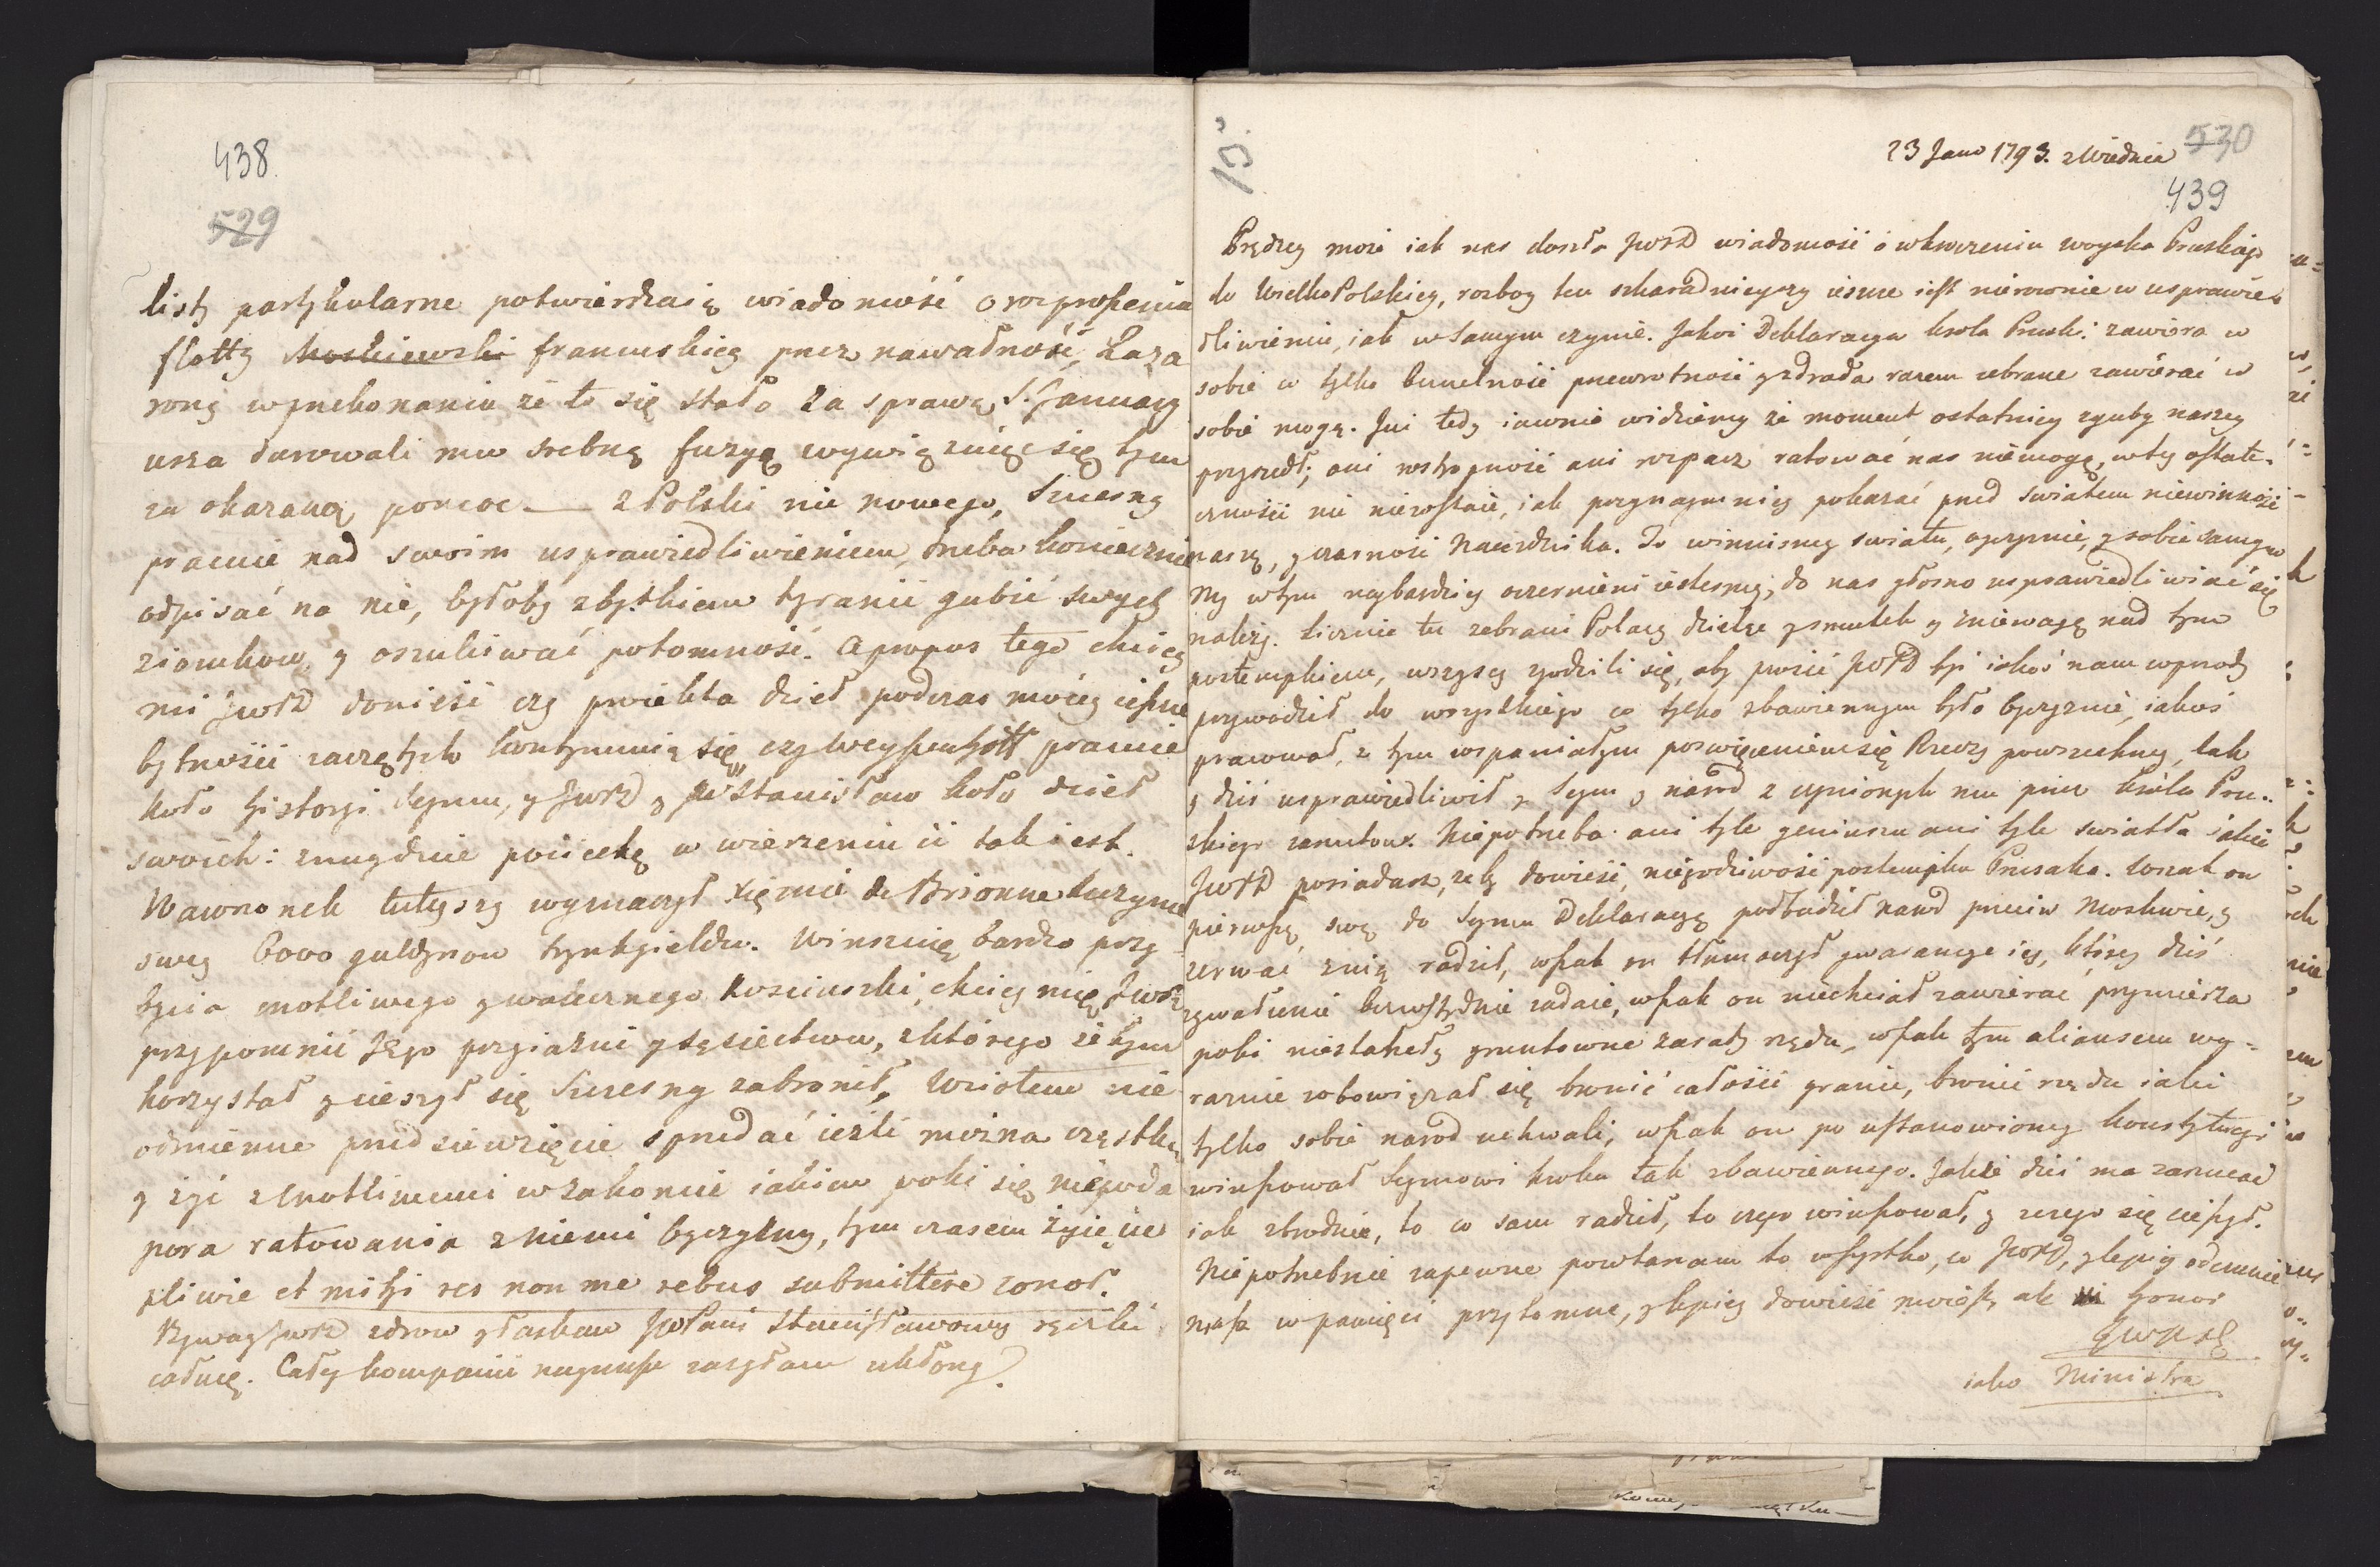 438
529
listy partykularne potwierdzaią wiadomość o rozproszeniu
flotty Moskiewski francuskiey przez nawałność, Laza
rony w przekonaniu że to się stało za sprawą S. January
usza darowali mu srebną fuzyą wywięzuiąc się tym
za okazaną pomoc — z Polski nic nowego, Szczesny
pracuie nad swoim usprawiedliwieniem, trzeba koniecznie
odpisać na nie, byłoby zbytkiem tyranii gubić swych
ziomkow y oszukiwać potomność. Apropos tego chciey
mi JWPD donieść czy proiekta dzieł podczas moiey ieszcze
bytności zaczętych kontynuuią się, czy Weyssenhoff pracuie
koło historyi Seymu, y JWPD y JP Stanisław koło dzieł
swoich: znayduie pociechę w wierzeniu iż tak iest.
Wawrzonek tuteyszy wymaczył Xiężnie de Brionne kuzynce
swey 6000 guldynow trynkgieldu. Winszuię bardzo przy
bycia cnotliwego y walecznego Kosciuszki, chciey mię JWPD
przypomnić Jego przyiaźni y sąsiectwu, z którego żebym
korzystał y cieszył się Szczesny zabronił. Wziołem nie
odmienne przedsiewzięcie sprzedać ieźli można cząstkę
y żyć z cnotliwemi w zakonie iakim poki się niepoda
pora ratowania z niemi Oyczyzny, tym czasem żyię cier
pliwie et mihi res non me rebus submittere conor.
Bywayże JWPD zdrow y łaskaw JWPani Stanisławowey rączki
całuię. Cały kompanii nayniższe zasyłam ukłony.
10.
23 Janu 1793. z Wiednia
530
439
Prędzey może iak nas doszła JWPD wiadomość o wkroczeniu woyska Pruskiego
do WielkoPolskiey, rozboy ten szkaradnieyszy ieszcze iest nierownie w usprawie
dliwieniu, iak w samym czynie. Jakoż Deklaracya krola Prusk: zawiera w
sobie co tylko bezczelność przewrotność y zdrada razem zebrane zawierać w
sobie mogą. Już tedy iawnie widziemy że moment ostatniey zguby naszey
przyszedł; ani rostropność ani rozpacz ratować nas niemogą, w tey ostate
czności nic niezostaie, iak przynaymniey pokazać przed światem niewinność
naszę, y czarność Naiezdnika. To winnismy swiatu, oyczyznie, y sobie samym
My w tym naybardziey oczernieni iestesmy; do nas głosno usprawiedliwiać się
należy. Licznie tu zebrani Polacy dzieląc y smutek y zniewagę nad tym
postempkiem, wszyscy zgodzili się, aby prosić JWPD byś iakoś nam wprzody
przywodził do wszystkiego co tylko zbawiennym było Oyczyznie, iakoś
pracował, z tym wspaniałym poswięceniem się Rzeczy powszechney, tak
y dziś usprawiedliwił y Seym y naród z czynionych mu przez króla Pru
skiego zarzutow. Niepotrzeba ani tyle geniuszu ani tyle swiatła iakie
JWPD posiadasz, żeby dowieść niegodziwość postempku Prusaka. Wszak on
pierwszą swą do Seymu Deklaracyą podbudził narod przeciw Moskwie, y
zerwać z nią radził, wszak on tłumaczył gwarancye iey, ktorey dziś
zgwałcenie bezwstydnie zadaie, wszak on niechciał zawierać przymierza
poki niestaneły gruntowne zasady rządu, wszak tym aliansem wy
raznie zobowiązał się bronić całości granic, bronić rządu iaki
tylko sobie narod uchwali, wszak on po ustanowioney konstytucyi
winszował Seymowi kroku tak zbawiennego. Jakże dziś ma zarzucać
iak zbrodnie, to co sam radził, to czego winszował, y czego się cieszył.
Niepotrzebnie zapewne powtarzam to wszystko, co JWPD, y lepiey odemnie
masz w pamięci przytomne, y lepiey dowieść możesz, ale honor
JWPD
iako Ministra